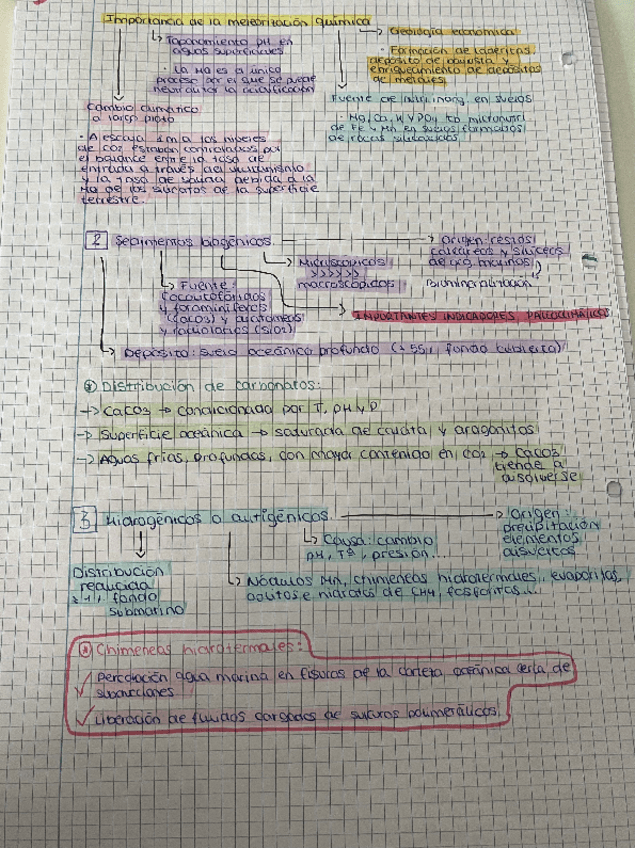 Importancia de la meteorización química
Taponamiento pH en
aguas superficiales
· La MQ es el único
proceso por el que se puede
neutralizar la acidificación
Geología económica
· Formación de lateritas
depósito de bauxita y
enriquecimiento de depósitos
de metales
Cambio climático
a largo plazo
· A escala m.a los niveles
de CO2 estaban controlados por
el balance entre la tasa de
entrada a través del vulcanismo
y la tasa de salida debida a la
MQ de los silicatos de la superficie
terrestre.
Fuente de nutri. inorg. en suelos
· Mg, Ca, K y PO4, to micronutri
de Fe y Mn en suelos formados
de rocas silicatadas
2 Sedimentos biogénicos
Origen: restos
calcáreos y silíceos
de org. marinos
Biomineralización
Microscópicos
>>>>>>
macroscópidos
Fuente:
cocolitofóridos
y foraminíferos
(CaCO3) y diatomeas
y radiolarios (SiO2)
IMPORTANTES INDICADORES PALEOCLIMÁTICOS
Depósito: suelo oceánico profundo (± 55% fondo cubierto)
Distribución de carbonatos:
→ CaCO3 → condicionada por T, pH y P
→ Superficie oceánica → saturada de calcita y aragonitos
→ Aguas frías, profundas, con mayor contenido en CO2 → CaCO3
tiende a
disolverse
3 Hidrogénicos o autigénicos
Origen:
precipitación
elementos
disueltos
Causa: cambio
pH, Tª, presión...
Distribución
reducida
fondo
submarino
Nódulos Mn, chimeneas hidrotermales, evaporitas,
oolitos e hidratos de CH4, fosforitos...
Chimeneas hidrotermales:
✓ Percolación agua marina en fisuras de la corteza oceánica cerca de
subducciones
✓ Liberación de fluidos cargados de sulfuros polimetálicos